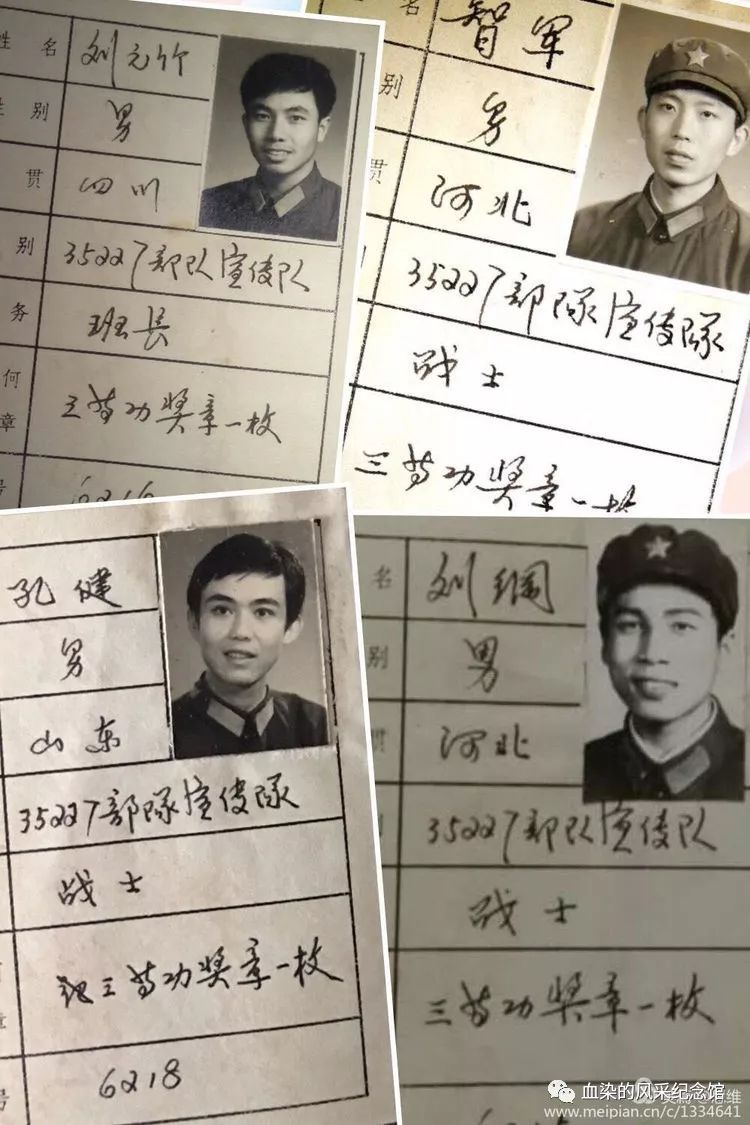 姓名 刘元竹
性别 男
贯 四川
别 35227部队宣传队
务 班长
何 三等功奖章一枚
章
号
名 智军
别 男
贯 河北
35227部隊宣传隊
战士
三等功奖章一枚
孔健
男
山东
35227部隊宣传隊
战士
纪三等功奖章一枚
章
号 6218
名 刘钢
别 男
贯 河北
35227部队宣传队
战士
三等功奖章一枚
血染的风采纪念馆
www.meipian.cn/c/1334641